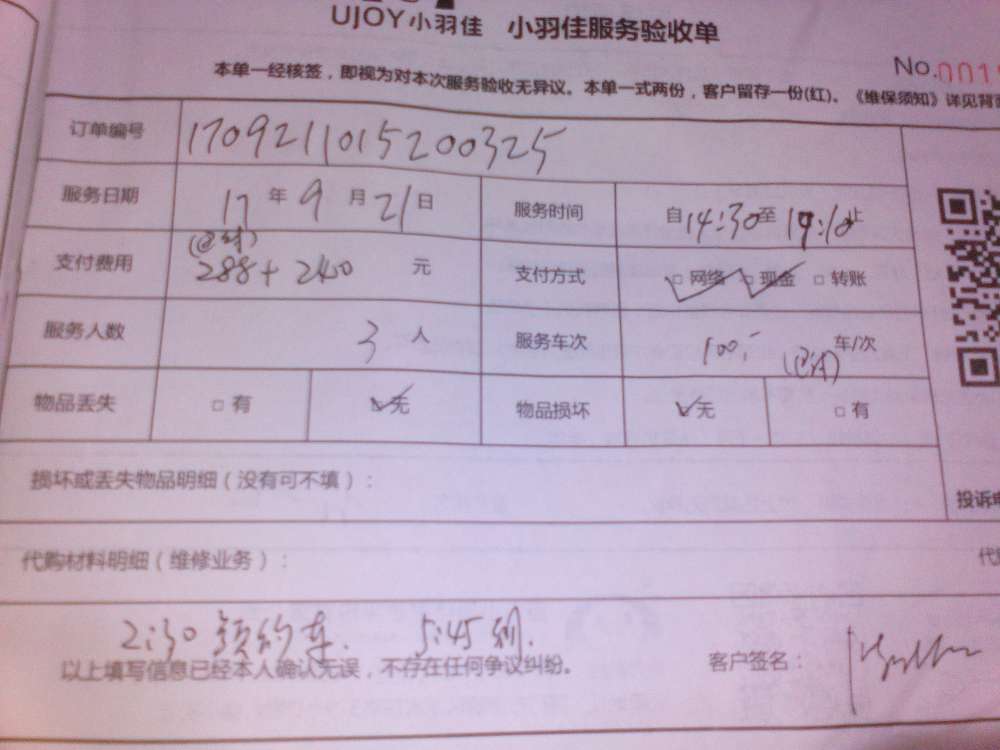 UJOY小羽佳 小羽佳服务验收单
No.001
本单一经核签，即视为对本次服务验收无异议。本单一式两份，客户留存一份(红)。《维保须知》详见背
订单编号 1709211015200325
服务日期 17年9月21日 服务时间 自14:30至19:10止
(已付)
支付费用 288+240 元 支付方式 □网络 □现金 □转账
服务人数 3人 服务车次 100.- 车/次
(已付)
物品丢失 □有 □无 物品损坏 □无 □有
损坏或丢失物品明细（没有可不填）：
投诉电
代购材料明细（维修业务）：
代
2:30预约车. 5:45到.
以上填写信息已经本人确认无误，不存在任何争议纠纷。 客户签名：